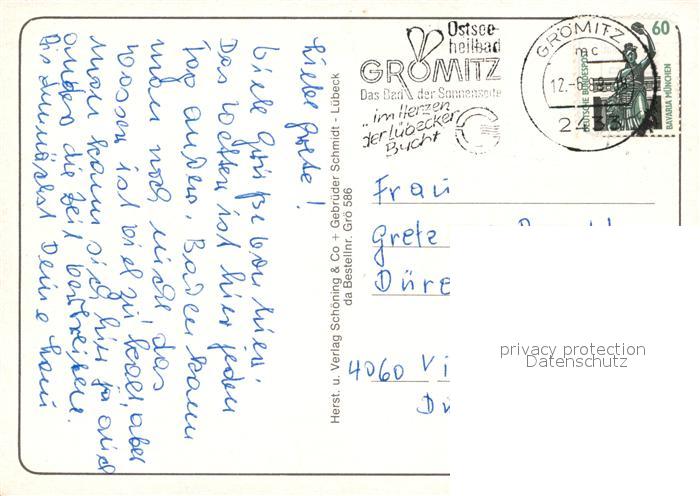 Liebe Grete!
Viele Grüße von hier.
Das Wetter ist hier jeden
Tag anders. Baden kann
man noch nicht das
Wasser ist viel zu kalt, aber
man kann sich hier ja auch
anders die Zeit vertreiben.
Bis demnächst Deine
Herst. u. Verlag Schöning & Co + Gebrüder Schmidt - Lübeck
da Bestellnr. Grö 586
Ostsee-
heilbad
GRÖMITZ
Das Bad der Sonnenseite
"im Herzen
der Lübecker
Bucht
GRÖMITZ
mc
12.
2433
60
DEUTSCHE BUNDESPOST
BAVARIA MÜNCHEN
Frau
Grete
Düre
4060 Vi
privacy protection
Datenschutz